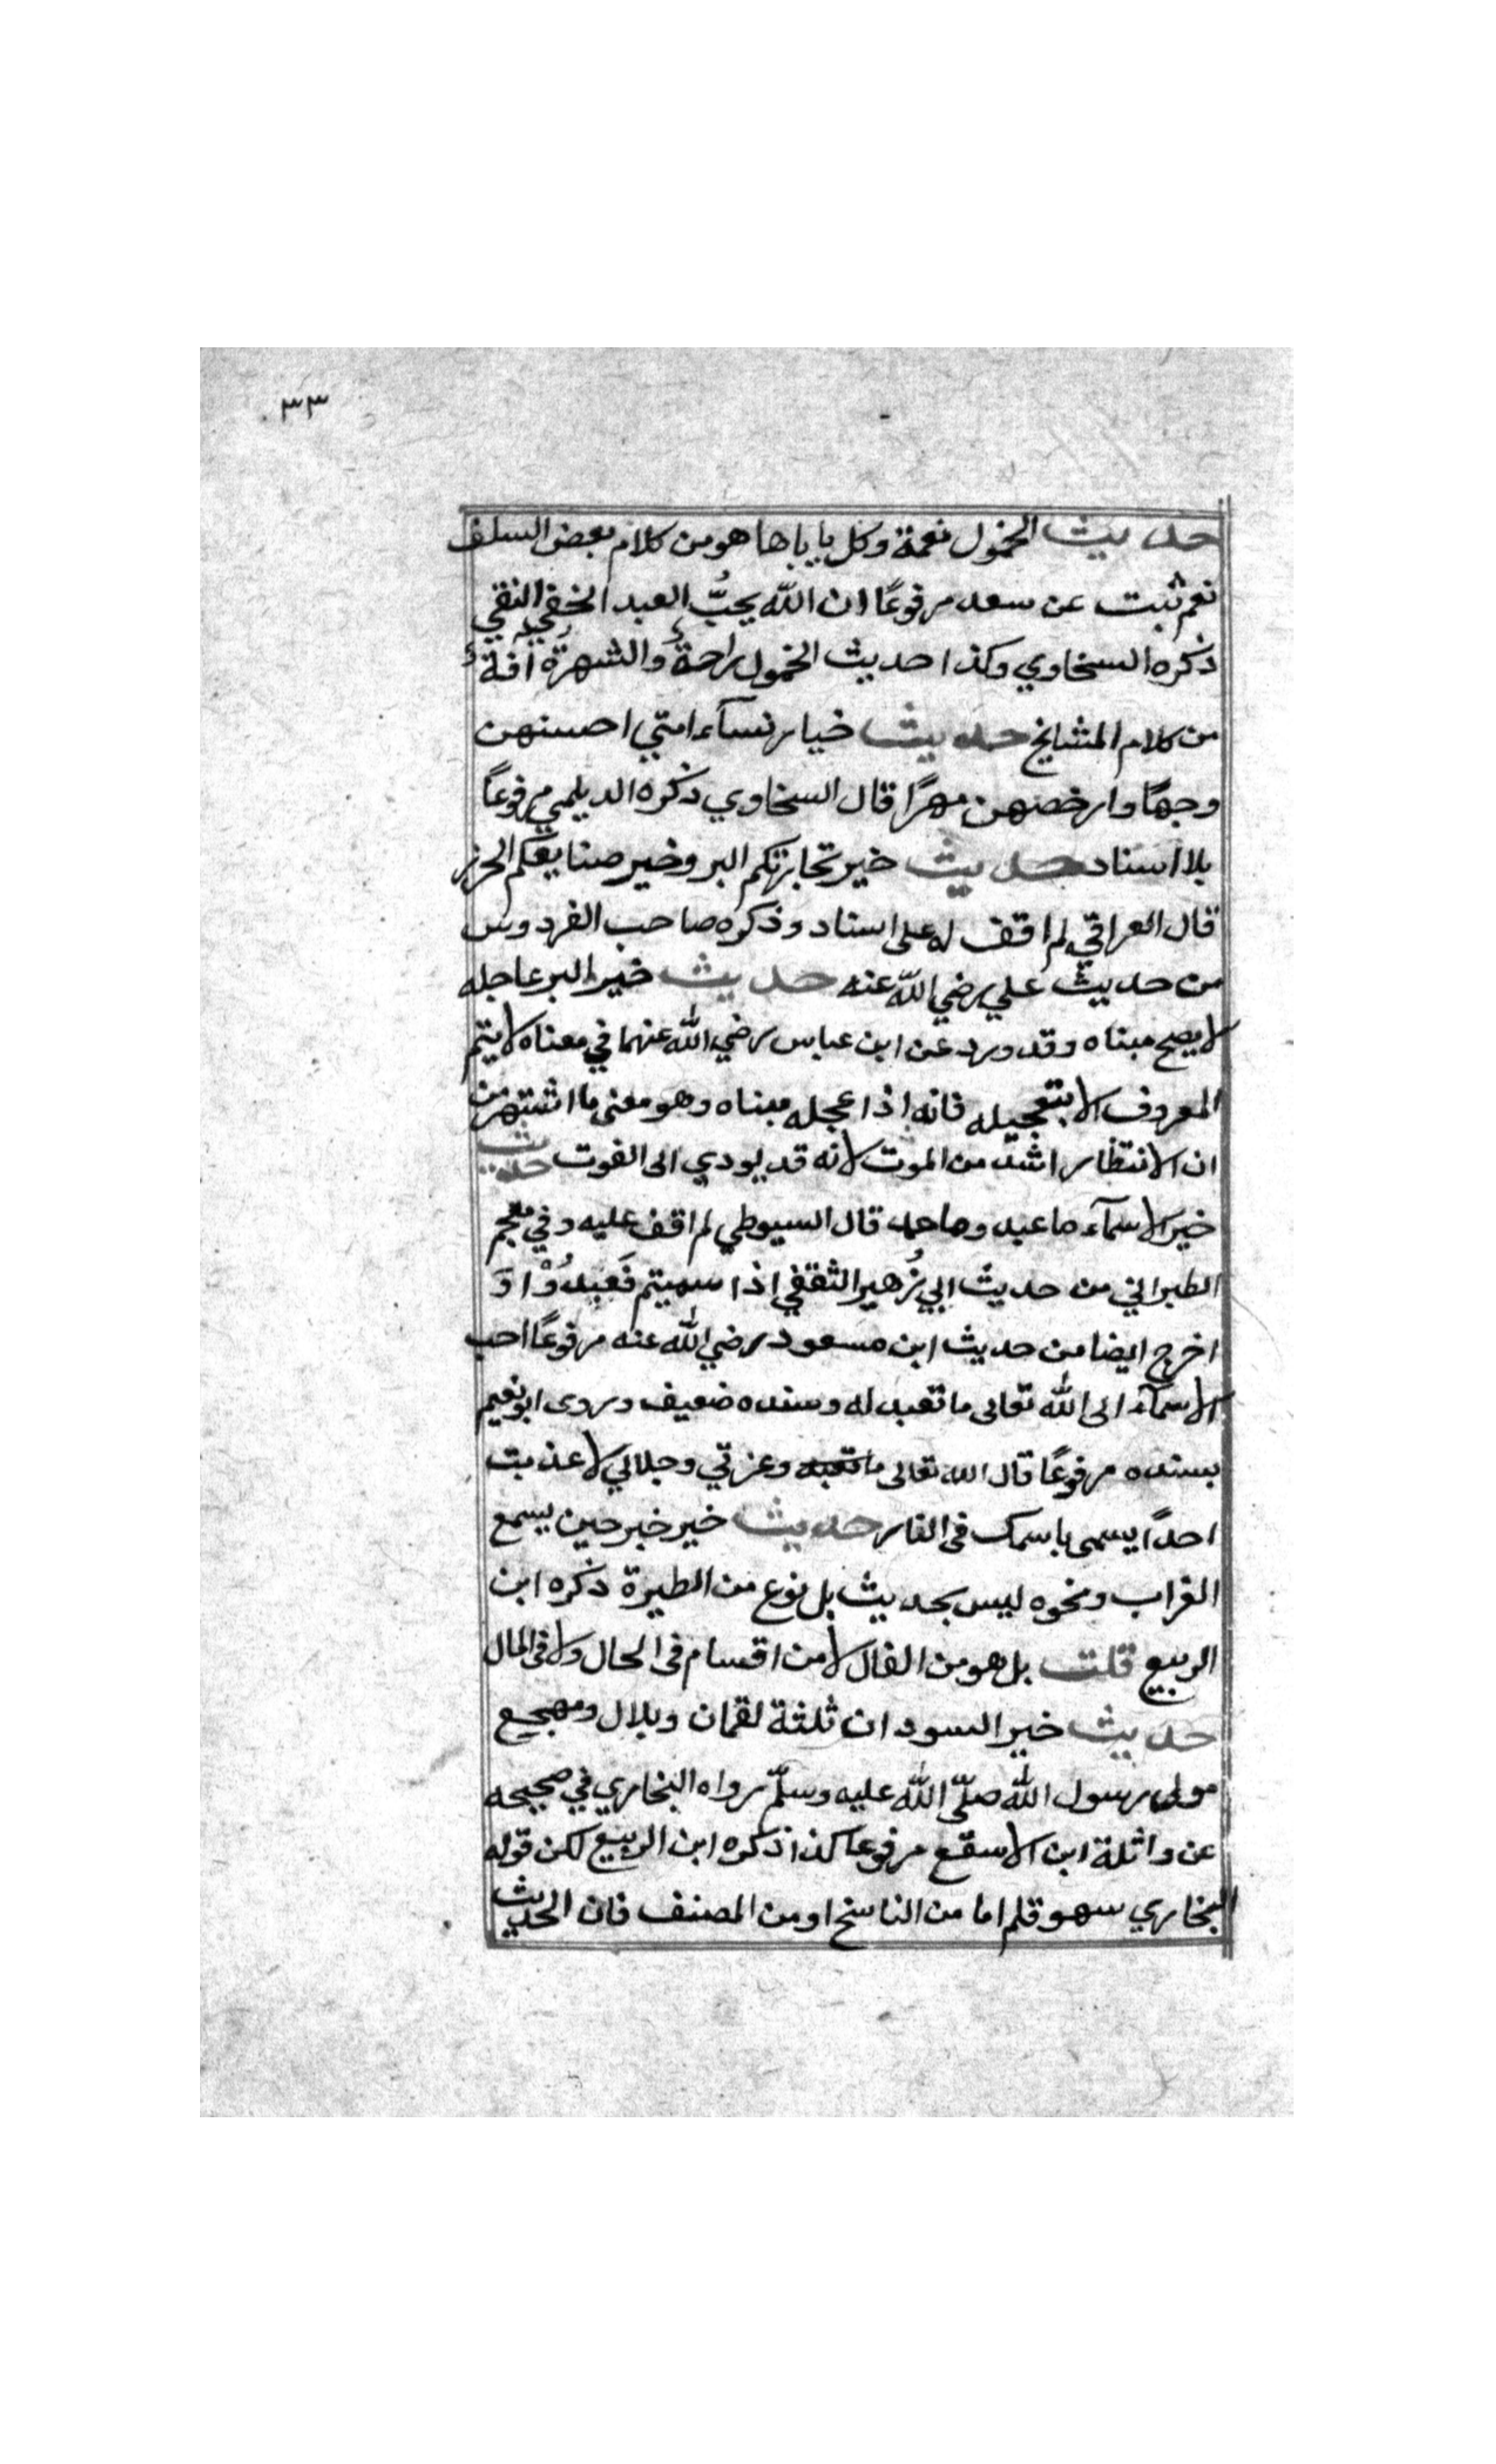 ٣٣
حديث الخمول نعمة وكل ياباها هو من كلام بعض السلف
نعم ثبت عن سعد مرفوعًا ان الله يحبُّ العبد الخفي النقي
ذكره السخاوي وكذا حديث الخمول راحةٌ والشهرة افةٌ
من كلام المشايخ حديث خيار نسآء امتي احسنهن
وجهًا وارخصهن مهرًا قال السخاوي ذكره الديلمي مرفوعًا
بلا اسناد حديث خير تجارتكم البر وخير صنايعكم الخرز
قال العراقي لم اقف له على اسناد وذكره صاحب الفردوس
من حديث علي رضي الله عنه حديث خير البر عاجله
لا يصح مبناه وقد ورد عن ابن عباس رضي الله عنهما في معناه لا يتم
المعروف الا بتعجيله فانه اذا عجله مبناه وهو معنى ما اشتهر من
ان الانتظار اشد من الموت لانه قد يودي الى الفوت حديث
خير الاسمآء ما عبد وما حمد قال السيوطي لم اقف عليه وفي معجم
الطبراني من حديث ابي زُهير الثقفي اذا سميتم فَعَبِدُوْا وَ
اخرج ايضا من حديث ابن مسعود رضي الله عنه مرفوعًا احب
الاسمآء الى الله تعالى ما تعبد له وسنده ضعيف وروى ابو نعيم
بسنده مرفوعًا قال الله تعالى ما تعبد وعزتي وجلالي لا عذبت
احدًا يسمى باسمك فى النار حديث خير خبر حين يسمع
الغراب ونحوه ليس بحديث بل نوع من الطيرة ذكره ابن
الربيع قلت بل هو من الفال لا من اقسام فى الحال ولا فى المال
حديث خير السودان ثلثة لقمان وبلال ومهجع
مولى رسول الله صلّى الله عليه وسلّم رواه البخاري في صحيحه
عن واثلة ابن الاسقع مرفوعا كذا ذكره ابن الربيع لكن قوله
البخاري سهو قلم اما من الناسخ او من المصنف فان الحديث